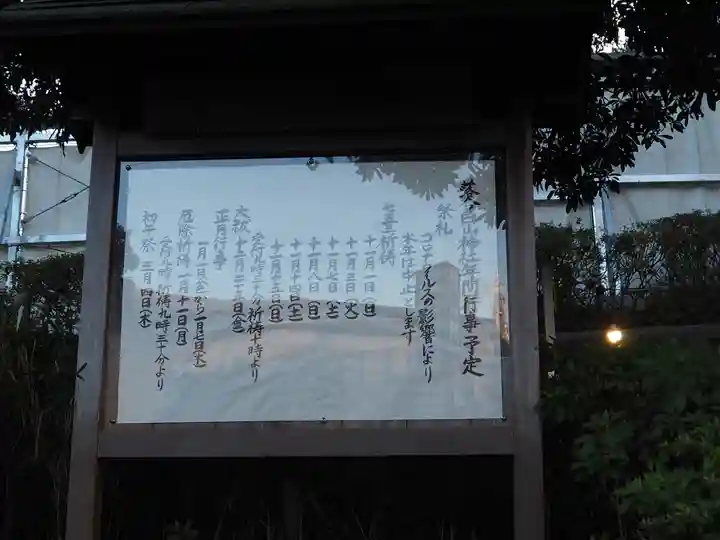 白山神社年間行事予定
祭礼
コロナウイルスの影響により
本年は中止とします
七五三祈祷
十一月一日(日)
十一月三日(火)
十一月七日(土)
十一月八日(日)
十一月十四日(土)
十一月十五日(日)
受付九時三十分 祈祷十時より
大祓 十二月二十五日(金)
正月行事
一月一日(金)から一月七日(木)
厄除祈祷 一月十一日(月)
受付九時 祈祷九時三十分より
初午祭 三月四日(木)